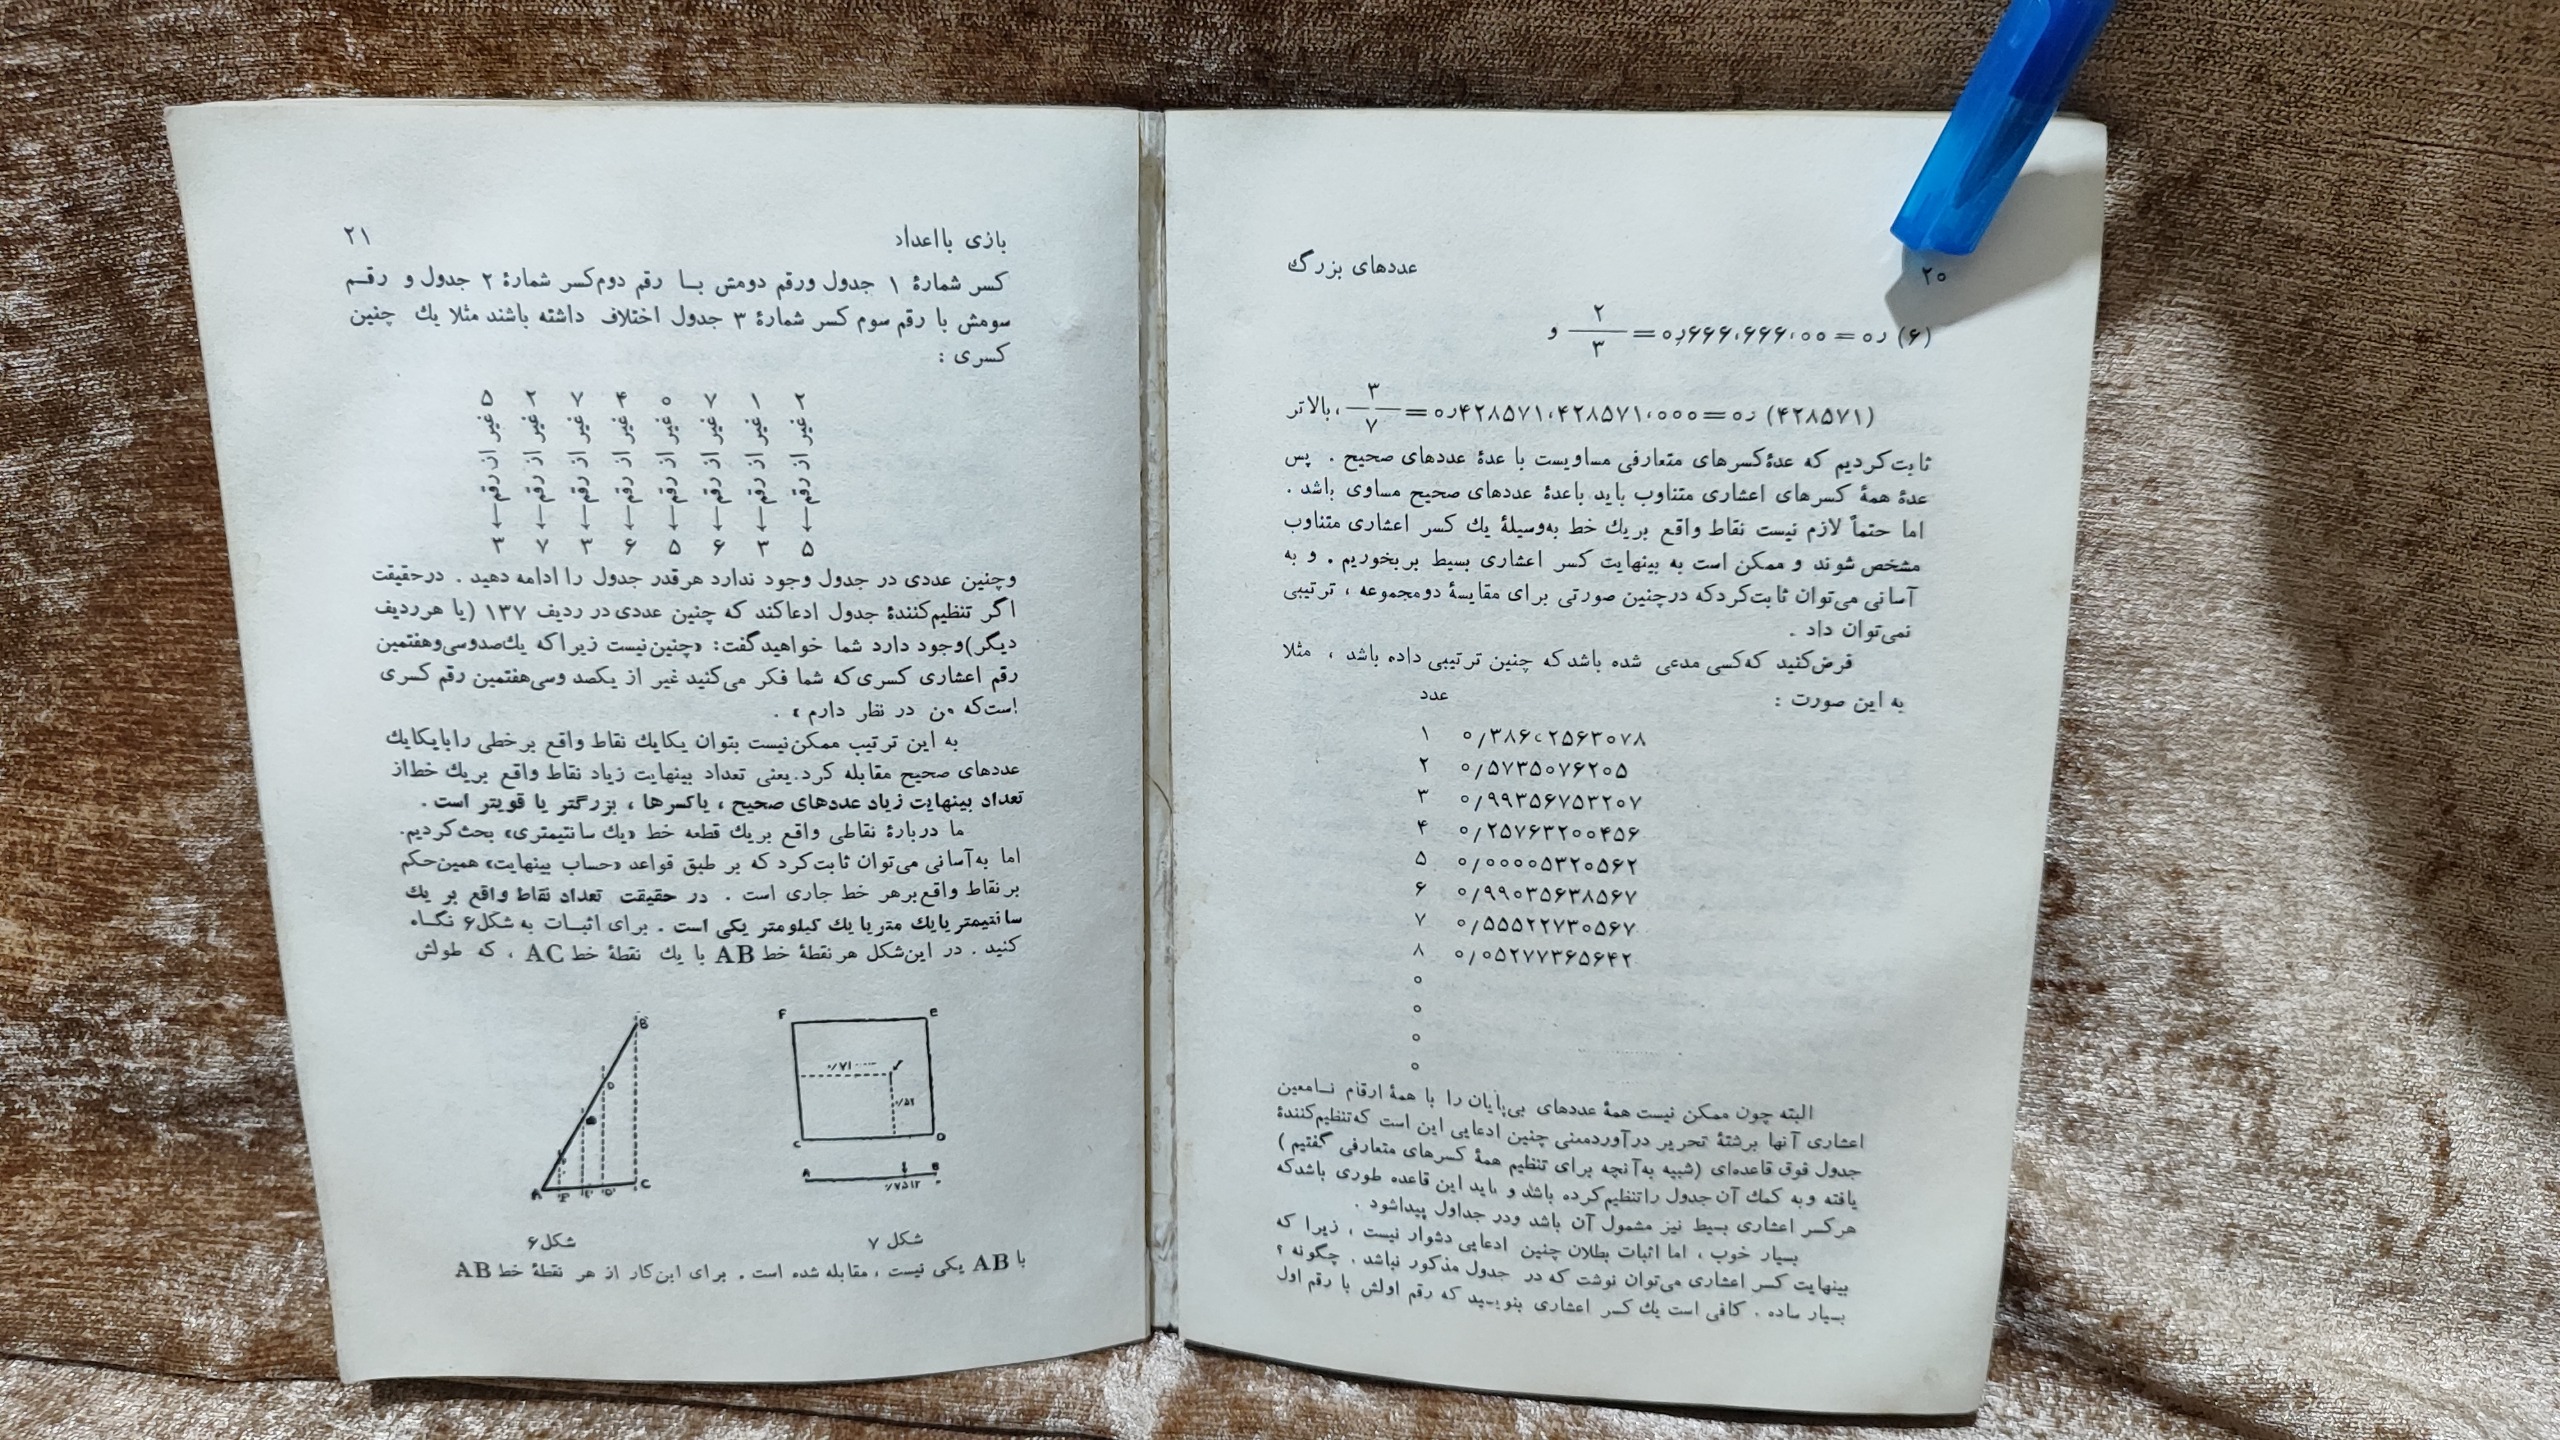 ۲۰
عددهای بزرگ
۲/۳ = ۰ر۶۶۶،۶۶۶،۰۰ = ۰ر (۶) و
(۴۲۸۵۷۱) ر۰=۰ر۴۲۸۵۷۱،۴۲۸۵۷۱،۰۰۰= ۳/۷ ، بالاتر
ثابت کردیم که عدهٔ کسرهای متعارفی مساویست با عدهٔ عددهای صحیح . پس
عدهٔ همهٔ کسرهای اعشاری متناوب باید با عدهٔ عددهای صحیح مساوی باشد .
اما حتماً لازم نیست نقاط واقع بر یك خط به‌وسیلهٔ یك کسر اعشاری متناوب
مشخص شوند و ممکن است به بینهایت کسر اعشاری بسیط بر بخوریم . و به
آسانی می‌توان ثابت کرد که در چنین صورتی برای مقایسهٔ دو مجموعه ، ترتیبی
نمی‌توان داد .
فرض کنید که کسی مدعی شده باشد که چنین ترتیبی داده باشد ، مثلا
به این صورت :
عدد
۱ ۰/۳۸۶۰۲۵۶۳۰۷۸
۲ ۰/۵۷۳۵۰۷۶۲۰۵
۳ ۰/۹۹۳۵۶۷۵۳۲۰۷
۴ ۰/۲۵۷۶۳۲۰۰۴۵۶
۵ ۰/۰۰۰۰۵۳۲۰۵۶۲
۶ ۰/۹۹۰۳۵۶۳۸۵۶۷
۷ ۰/۵۵۵۲۲۷۳۰۵۶۷
۸ ۰/۰۵۲۷۷۳۶۵۶۴۲
۰
۰
۰
۰
البته چون ممکن نیست همهٔ عددهای بی‌پایان را با همهٔ ارقام نـامعین
اعشاری آنها برشتهٔ تحریر درآورد معنی چنین ادعایی این است که تنظیم‌کنندهٔ
جدول فوق قاعده‌ای (شبیه به آنچه برای تنظیم همهٔ کسرهای متعارفی گفتیم )
یافته و به کمك آن جدول را تنظیم کرده باشد و باید این قاعده طوری باشد که
هر کسر اعشاری بسیط نیز مشمول آن باشد و در جداول پیدا شود .
بسیار خوب ، اما اثبات بطلان چنین ادعایی دشوار نیست ، زیرا که
بینهایت کسر اعشاری می‌توان نوشت که در جدول مذکور نباشد . چگونه ؟
بسیار ساده . کافی است یك کسر اعشاری بنویسید که رقم اولش با رقم اول
بازی با اعداد
۲۱
کسر شمارهٔ ۱ جدول و رقم دومش بـا رقم دوم کسر شمارهٔ ۲ جدول و رقـم
سومش با رقم سوم کسر شمارهٔ ۳ جدول اختلاف داشته باشند مثلا یك چنین
کسری :
۵ ۲ ۷ ۴ ۰ ۷ ۱ ۲
غیر از رقم← غیر از رقم← غیر از رقم← غیر از رقم← غیر از رقم← غیر از رقم← غیر از رقم← غیر از رقم←
۳ ۷ ۳ ۶ ۵ ۶ ۳ ۵
و چنین عددی در جدول وجود ندارد هر قدر جدول را ادامه دهید . در حقیقت
اگر تنظیم‌کنندهٔ جدول ادعا کند که چنین عددی در ردیف ۱۳۷ (یا هر ردیف
دیگر) وجود دارد شما خواهید گفت: «چنین نیست زیرا که یك‌صد و سی و هفتمین
رقم اعشاری کسری که شما فکر می‌کنید غیر از یکصد و سی هفتمین رقم کسری
است که من در نظر دارم » .
به این ترتیب ممکن نیست بتوان یکایك نقاط واقع بر خطی را با یکایك
عددهای صحیح مقابله کرد. یعنی تعداد بینهایت زیاد نقاط واقع بر یك خط از
تعداد بینهایت زیاد عددهای صحیح ، یا کسرها ، بزرگتر یا قویتر است .
ما دربارهٔ نقاطی واقع بر یك قطعه خط «یك سانتیمتری» بحث کردیم.
اما به آسانی می‌توان ثابت کرد که بر طبق قواعد «حساب بینهایت» همین حکم
بر نقاط واقع بر هر خط جاری است . در حقیقت تعداد نقاط واقع بر یك
سانتیمتر یا یك متر یا یك کیلومتر یکی است . برای اثبـات به شکل ۶ نگـاه
کنید . در این شکل هر نقطهٔ خط AB با یك نقطهٔ خط AC ، که طولش
F E
۰/۷۱
۰/۵۲
C D
A B
۰/۷۵۱۲
B
D
A C
شکل ۷
شکل ۶
با AB یکی نیست ، مقابله شده است . برای این کار از هر نقطهٔ خط AB